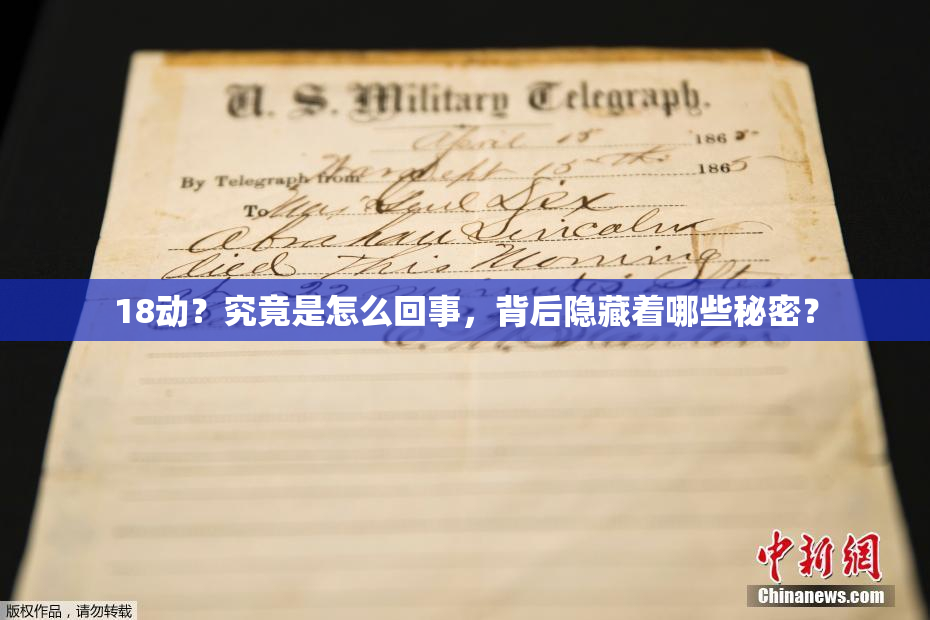 U. S. Military Telegraph.
April 15 1865
By Telegraph from War Dept 15th 1865
To Maj Genl Dix
Abraham Lincoln
died This Morning
22 minutes after
18动？究竟是怎么回事，背后隐藏着哪些秘密？
中新网
Chinanews.com
版权作品，请勿转载